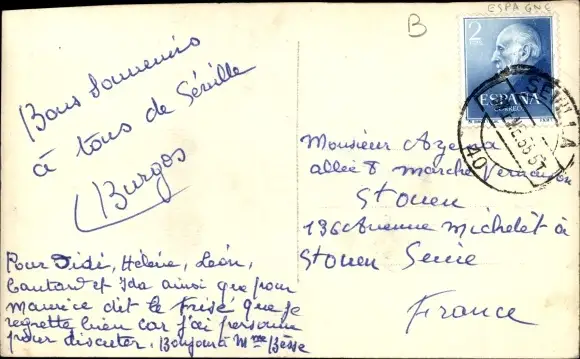 Bons Souvenirs
à tous de Séville
Burgos
Pour Didi, Hélène, Léon,
et Ida ainsi que pour
Maurice dit le frisé que je
regrette bien car j'ai personne
pour discuter. Bonjour à Mme Bèsse
ESPAGNE
B
2
PTAS
ESPAÑA
CORREOS
SEVILLA
ENE 55
40
Monsieur Azema
allée 8 marché Vernaison
St Ouen
136 Avenue Michelet à
St Ouen Seine
France